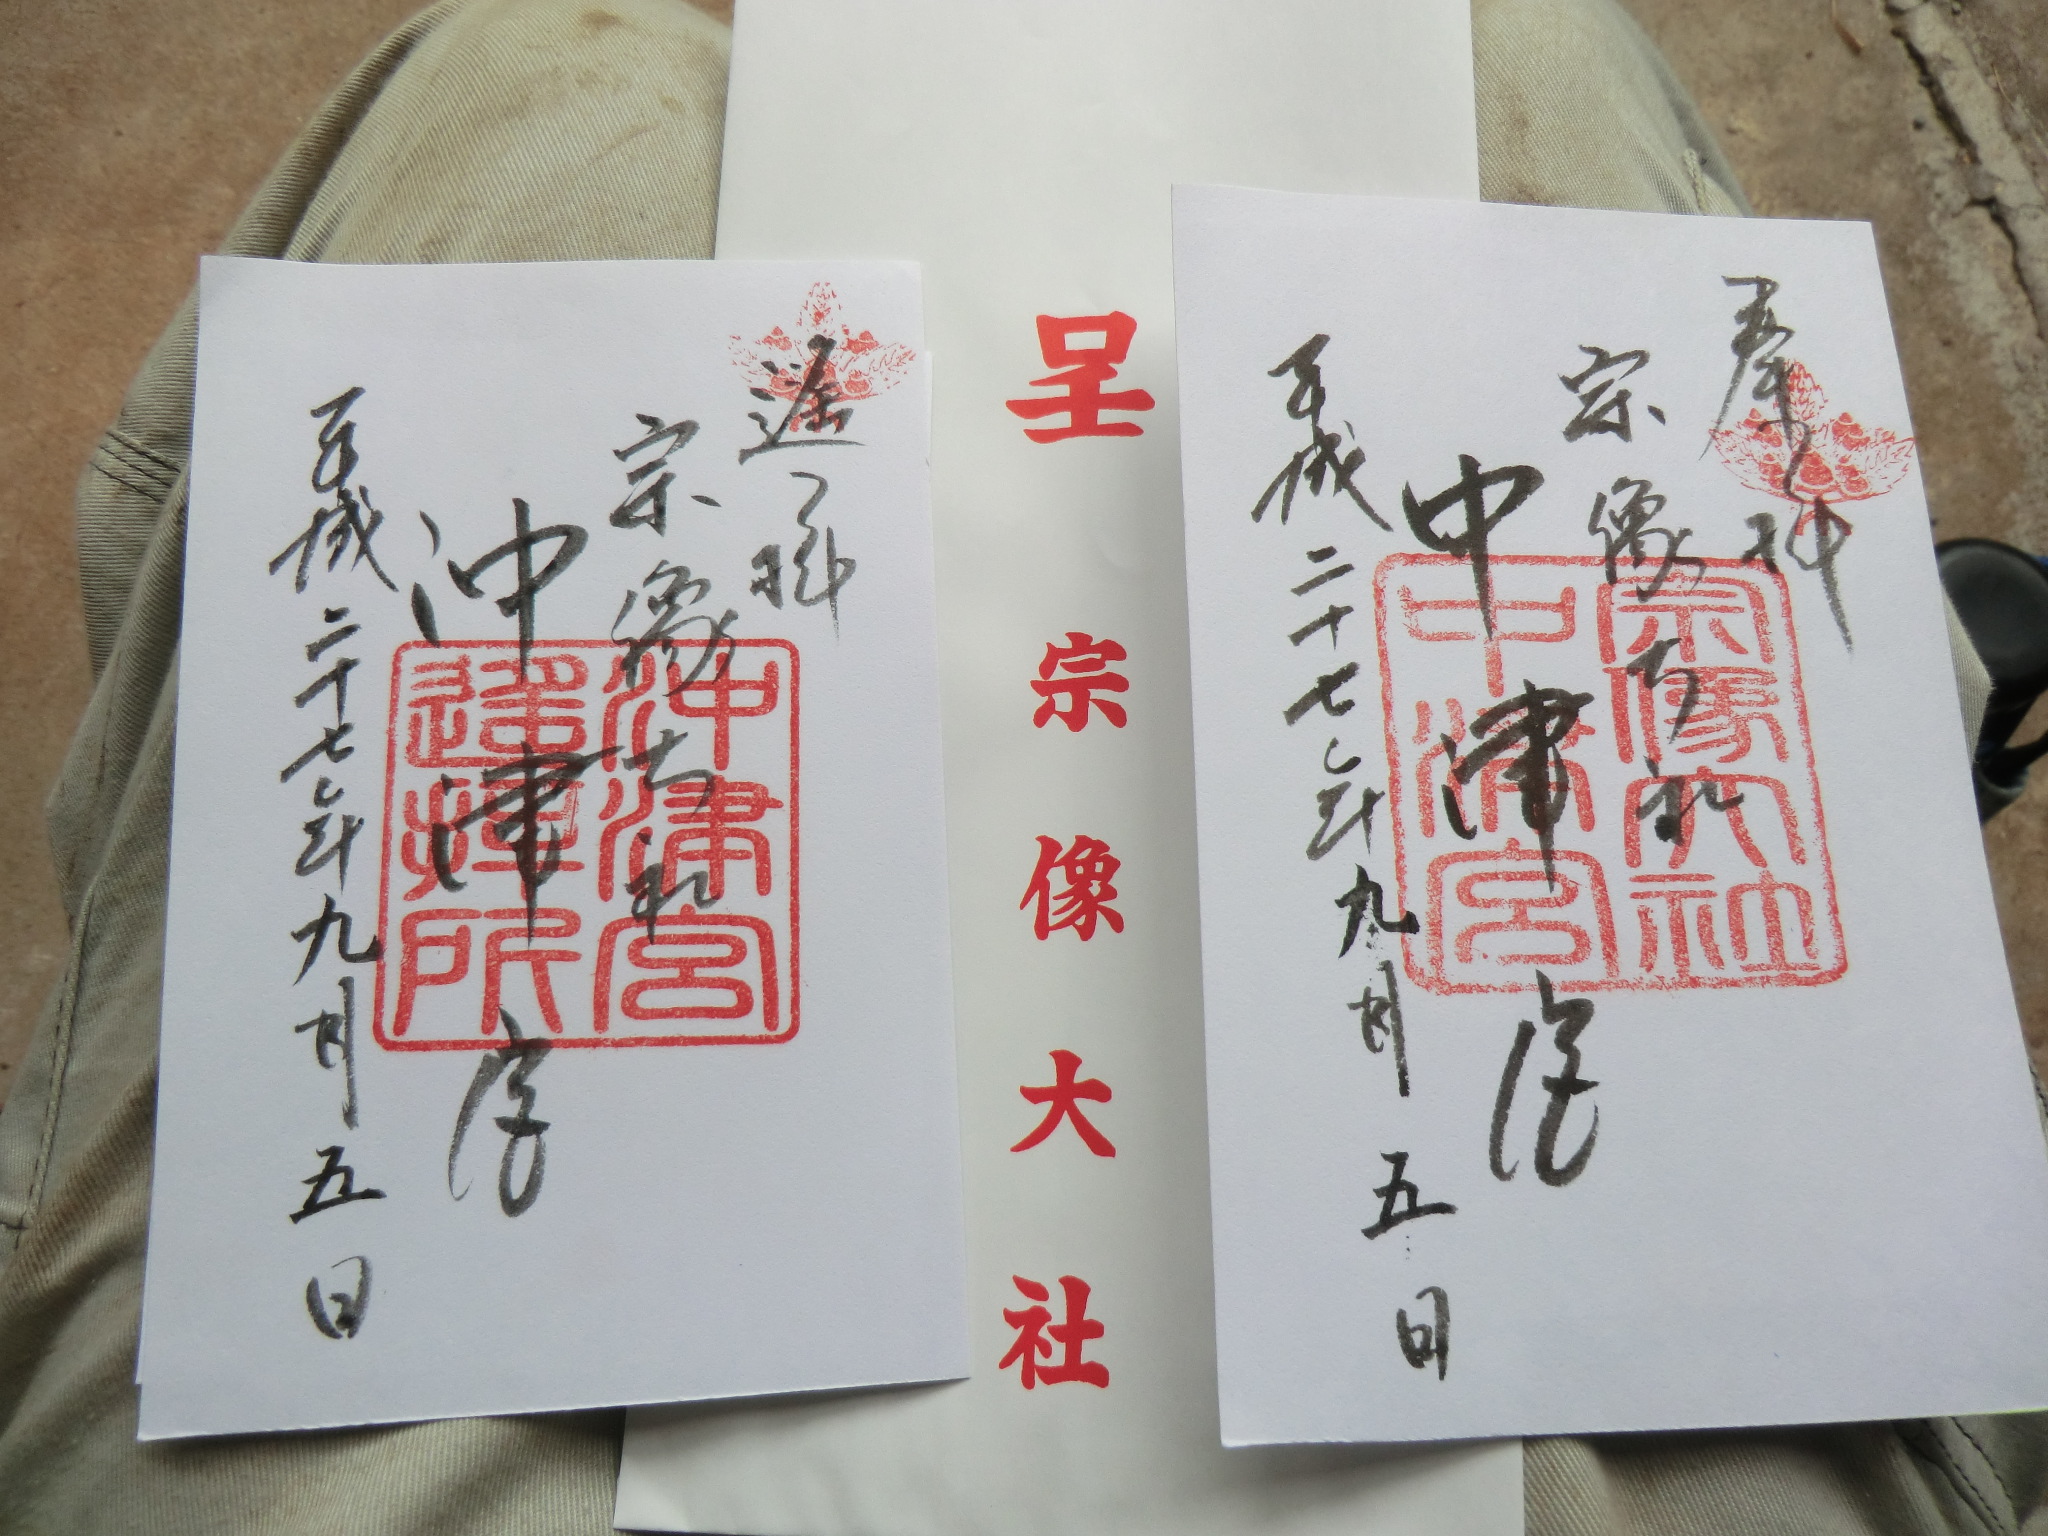 奉拝
宗像大社
中津宮
平成二十七年九月五日
宗像大社
中津宮
呈 宗像大社
遥拝
宗像大社
沖津宮
平成二十七年九月五日
沖津宮
遥拝所